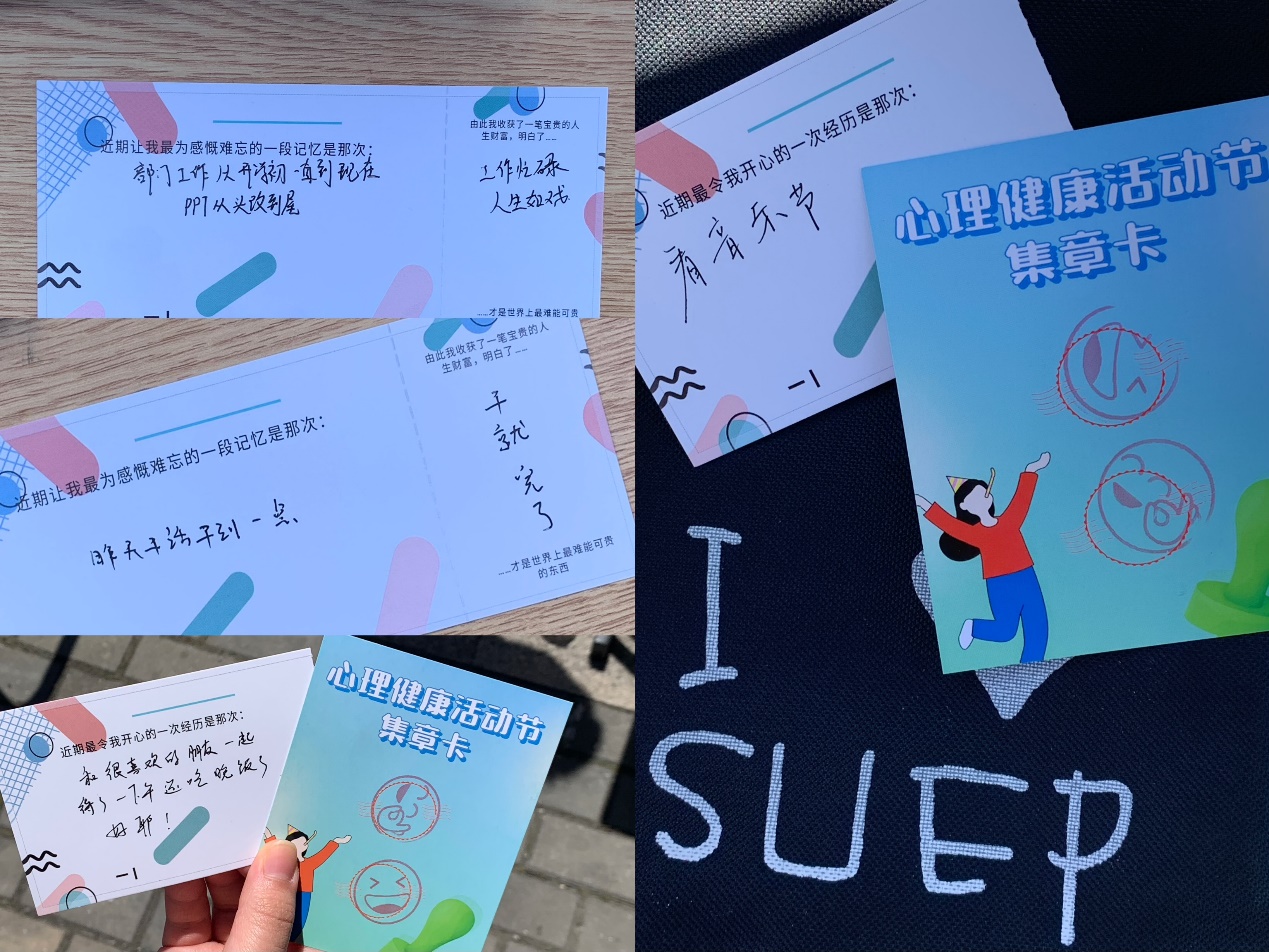 近期让我最为感慨难忘的一段记忆是那次：
部门工作从开学初一直到现在
PPT从头改到尾
由此我收获了一笔宝贵的人
生财富，明白了……
工作忙碌
人生如戏
……才是世界上最难能可贵
近期让我最为感慨难忘的一段记忆是那次：
昨天干活干到一点
由此我收获了一笔宝贵的人
生财富，明白了……
干
就
完
了
……才是世界上最难能可贵
的东西
近期最令我开心的一次经历是那次：
和很喜欢的朋友一起
待了一下午还吃晚饭了
好耶！
心理健康活动节
集章卡
近期最令我开心的一次经历是那次：
看音乐节
心理健康活动节
集章卡
I
SUEP